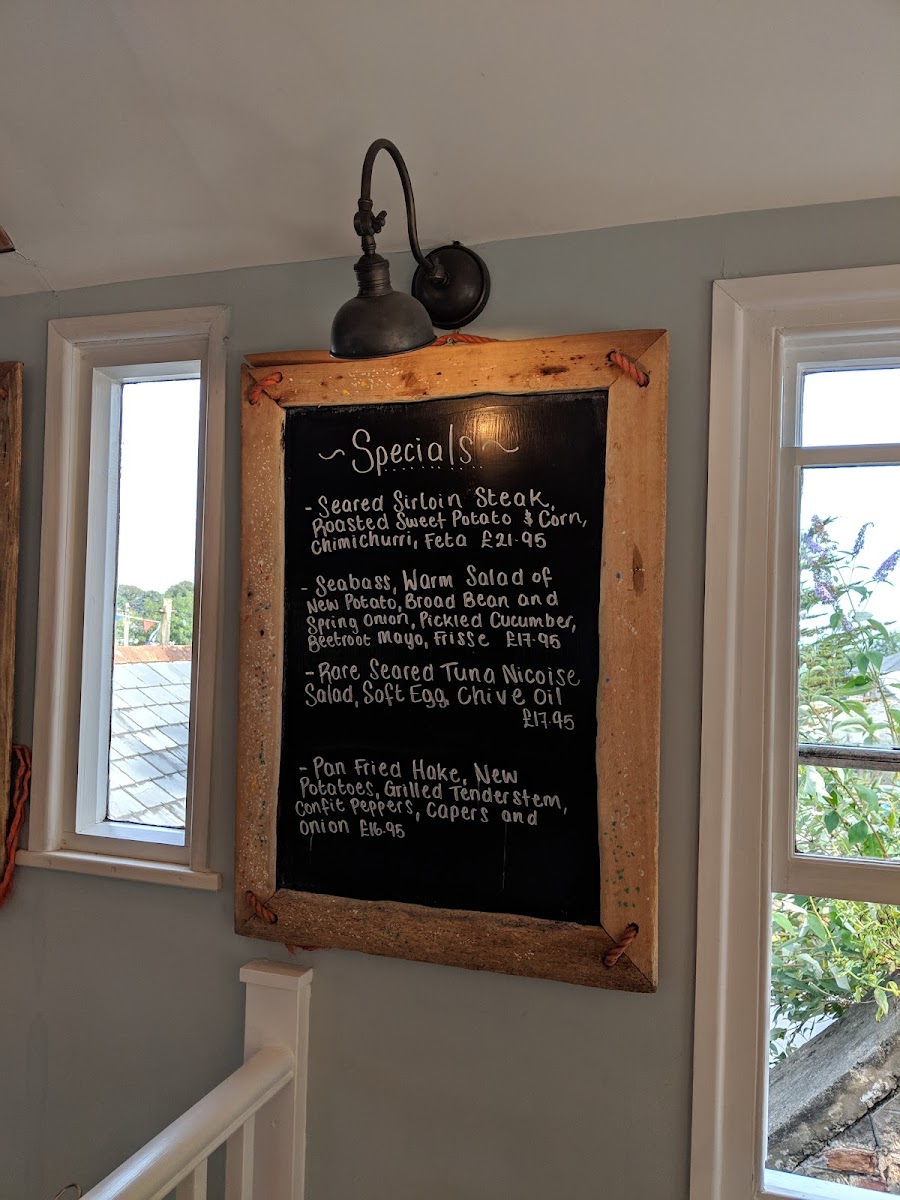 ~ Specials ~
- Seared Sirloin Steak,
Roasted Sweet Potato & Corn,
Chimichurri, Feta £21.95
- Seabass, Warm Salad of
New Potato, Broad Bean and
Spring Onion, Pickled Cucumber,
Beetroot Mayo, Frisse £17.95
- Rare Seared Tuna Nicoise
Salad, Soft Egg, Chive Oil
£17.95
- Pan Fried Hake, New
Potatoes, Grilled Tenderstem,
Confit Peppers, Capers and
Onion £16.95